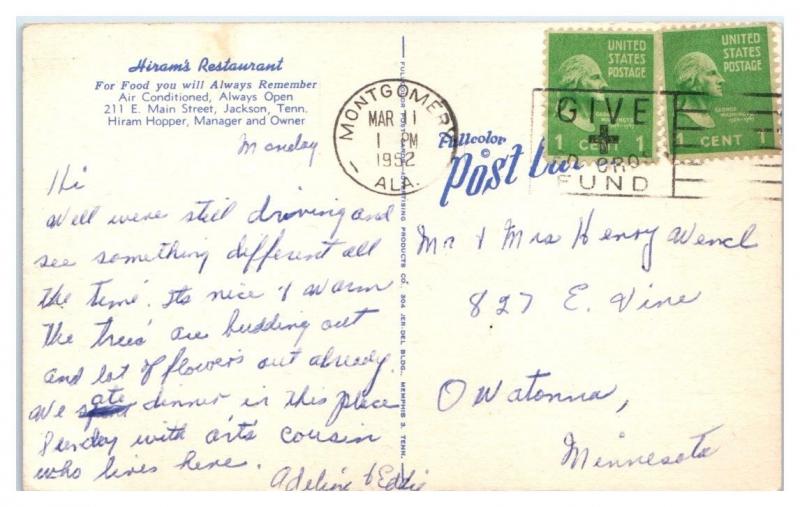 Hiram's Restaurant
For Food you will Always Remember
Air Conditioned, Always Open
211 E. Main Street, Jackson, Tenn.
Hiram Hopper, Manager and Owner
Monday
Hi
Well were still driving and
see something different all
the time. Its nice & warm
the trees are budding out
and lot of flowers out already.
We ate dinner in this place
Sunday with art's cousin
who lives here.
Adeline & Eddie
FULLCOLOR
ADVERTISING PRODUCTS CO. 304 JER-DEL BLDG. MEMPHIS 3, TENN.
MONTGOMERY
MAR 11
1 PM
1952
ALA.
Fullcolor
©
Post
UNITED
STATES
POSTAGE
1 CENT 1
UNITED
STATES
POSTAGE
GEORGE
WASHINGTON
1 CENT 1
GIVE
FUND
Mr & Mrs Henry Wencl
827 E. Vine
Owatonna,
Minnesota